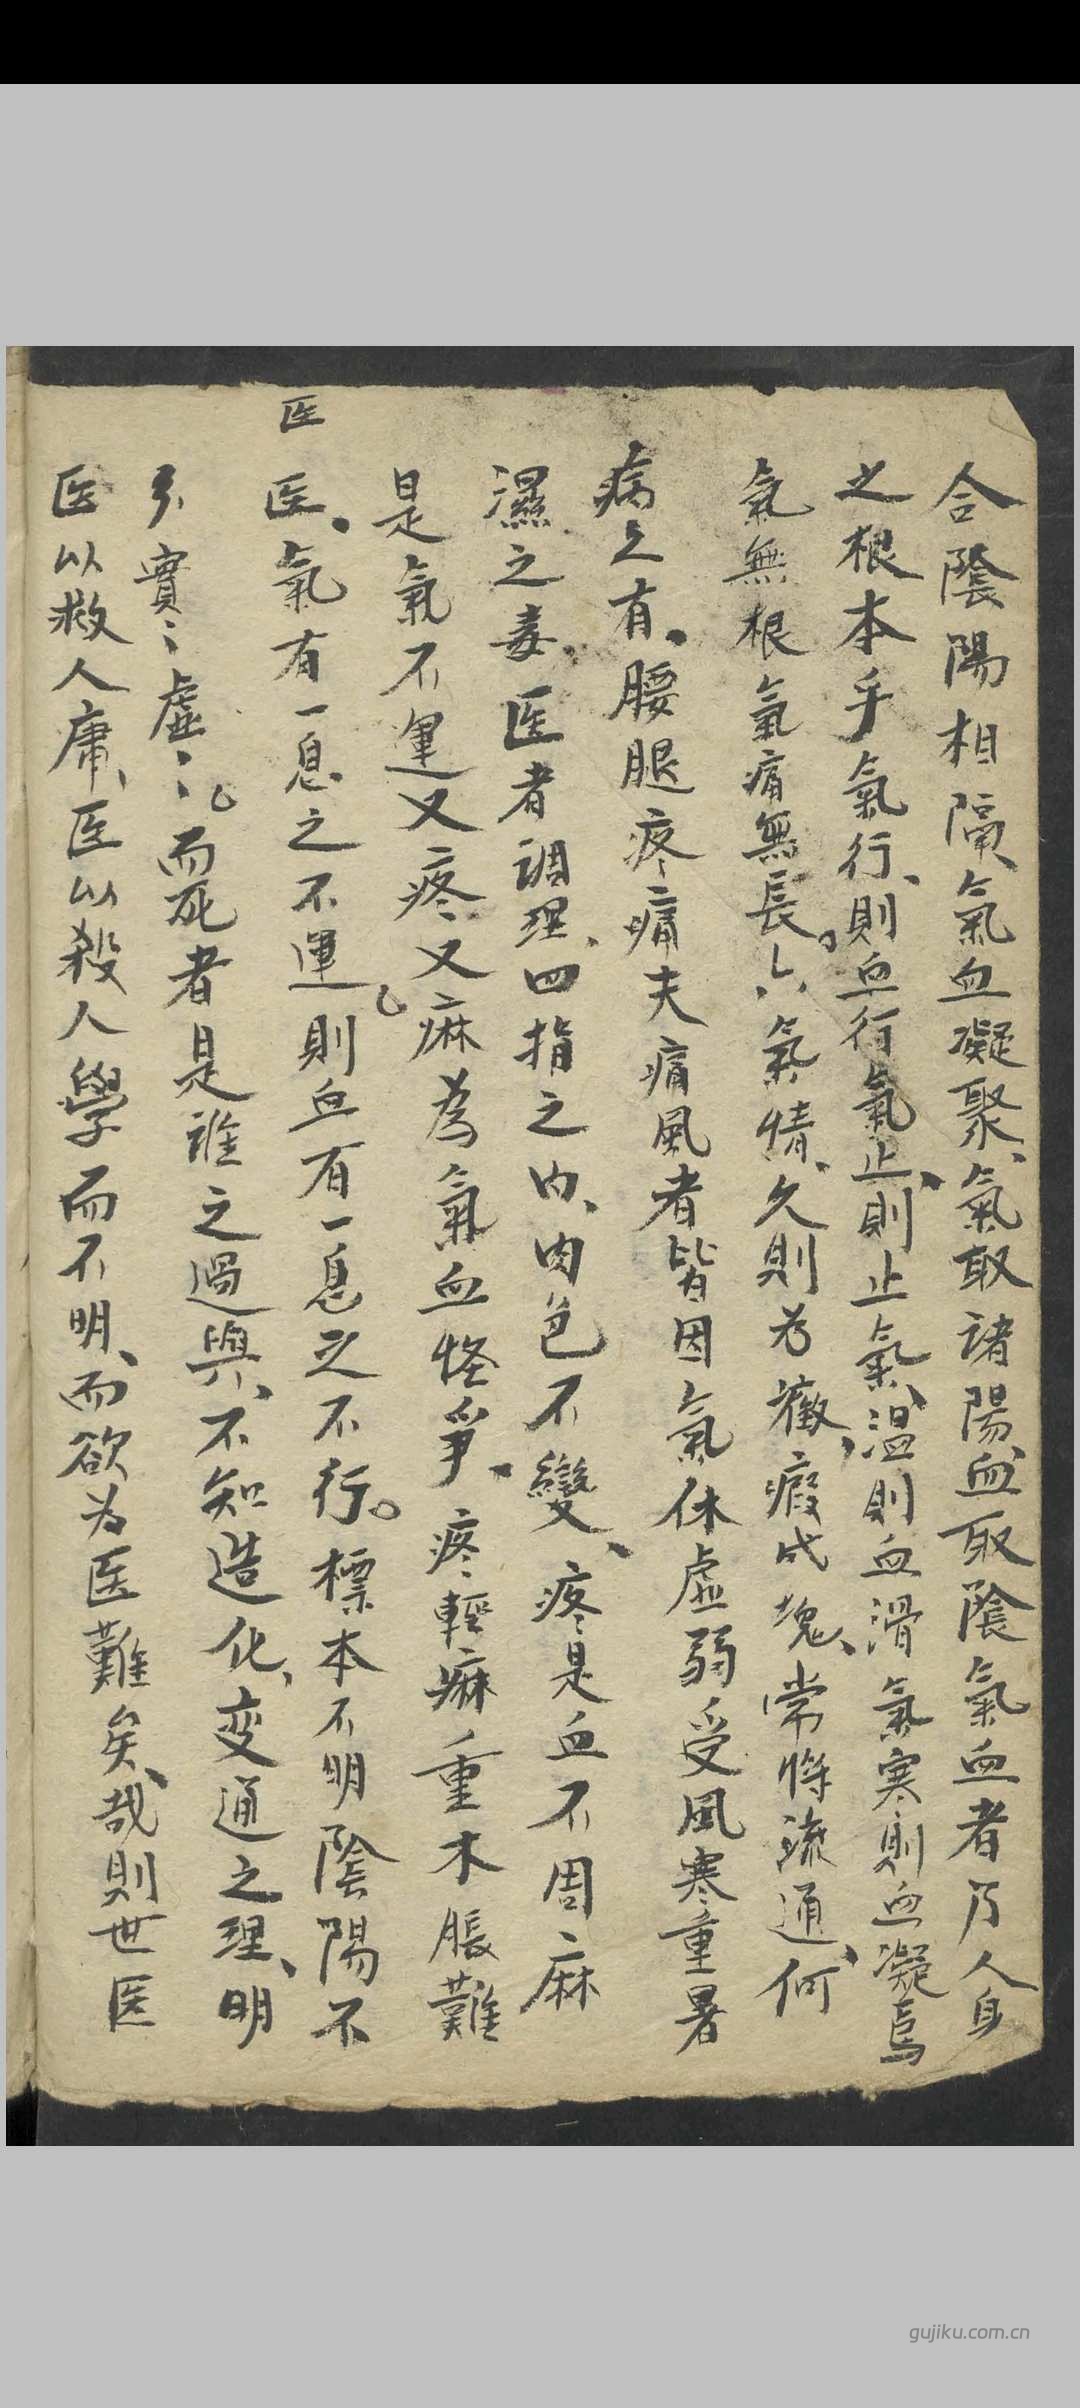 合陰陽相隔、氣血凝聚、氣取諸陽、血取陰氣血者乃人身
之根本乎氣行、則血行氣止、則止氣、温則血滑氣寒則血凝焉
氣無根氣痛無長。六氣情、久則为癥、瘕成塊、常將流通、何
病之有、腰腿疼痛夫痛風者皆因氣休虛弱受風寒重暑
濕之毒、医者調理、四指之内、肉色不變、疼是血不周麻
是氣不運又疼又麻為氣血怪爭、疼輕麻重木脹難
医
医、氣有一息之不運則血有一息之不行。標本不明陰陽不
分實〻虛〻而死者是誰之過與、不知造化、变通之理、明
医以救人庸、医以殺人學而不明、而欲为医難矣、哉則世医
gujiku.com.cn